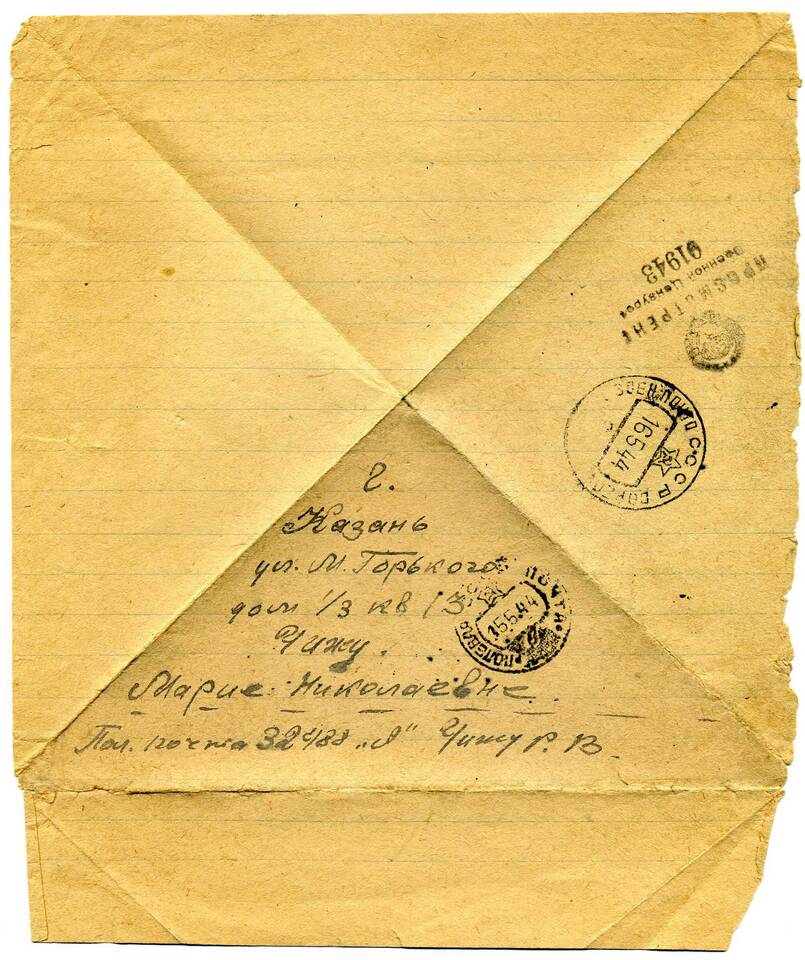 ПРОСМОТРЕНО
Военной Цензурой
01943
СССР
16 5 44
г.
Казань
ул. М. Горького
дом 1/3 кв 13
Чижу.
Марие Николаевне.
Пол. почта 32488 „Я" Чижу Р. В.
ПОЛЕВАЯ ПОЧТА
15.5.44